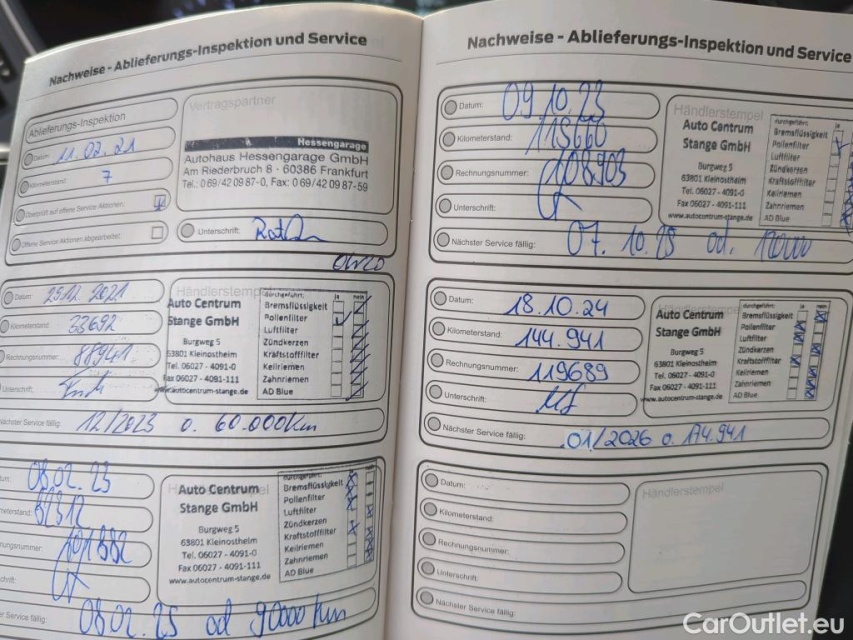 Nachweise - Ablieferungs-Inspektion und Service
Ablieferungs-Inspektion
Datum: 11.02.21
Kilometerstand: 7
Überprüft auf offene Service Aktionen:
Offene Service Aktionen abgearbeitet:
Vertragspartner
Hessengarage
Autohaus Hessengarage GmbH
Am Riederbruch 8 · 60386 Frankfurt
Tel.: 0 69/42 09 87-0, Fax: 0 69/42 09 87-59
Unterschrift:
Datum: 2021
Kilometerstand: 33692
Rechnungsnummer: 88941
Unterschrift:
Händlerstempel
Auto Centrum
Stange GmbH
Burgweg 5
63801 Kleinostheim
Tel. 06027 - 4091-0
Fax 06027 - 4091-111
www.autocentrum-stange.de
durchgeführt: ja nein
Bremsflüssigkeit
Pollenfilter
Luftfilter
Zündkerzen
Kraftstofffilter
Keilriemen
Zahnriemen
AD Blue
Nächster Service fällig: 12/2023 o. 60.000km
tum: 08.02.23
meterstand: 82312
nungsnummer: 101882
chrift:
Auto Centrum
Stange GmbH
Burgweg 5
63801 Kleinostheim
Tel. 06027 - 4091-0
Fax 06027 - 4091-111
www.autocentrum-stange.de
durchgeführt:
Bremsflüssigkeit
Pollenfilter
Luftfilter
Zündkerzen
Kraftstofffilter
Keilriemen
Zahnriemen
AD Blue
er Service fällig: 08.02.25 od 90000 km
Nachweise - Ablieferungs-Inspektion und Service
Datum: 09.10.23
Kilometerstand: 115660
Rechnungsnummer: 108903
Unterschrift:
Händlerstempel
Auto Centrum
Stange GmbH
Burgweg 5
63801 Kleinostheim
Tel. 06027 - 4091-0
Fax 06027 - 4091-111
www.autocentrum-stange.de
durchgeführt: ja
Bremsflüssigkeit
Pollenfilter
Luftfilter
Zündkerzen
Kraftstofffilter
Keilriemen
Zahnriemen
AD Blue
Nächster Service fällig: 07.10.25 od.
Datum: 18.10.24
Kilometerstand: 144.941
Rechnungsnummer: 119689
Unterschrift:
Auto Centrum
Stange GmbH
Burgweg 5
63801 Kleinostheim
Tel. 06027 - 4091-0
Fax 06027 - 4091-111
www.autocentrum-stange.de
durchgeführt: ja nein
Bremsflüssigkeit
Pollenfilter
Luftfilter
Zündkerzen
Kraftstofffilter
Keilriemen
Zahnriemen
AD Blue
Nächster Service fällig: 01/2026 o. 174.941
Datum:
Kilometerstand:
Rechnungsnummer:
Unterschrift:
Nächster Service fällig:
Händlerstempel
CarOutlet.eu